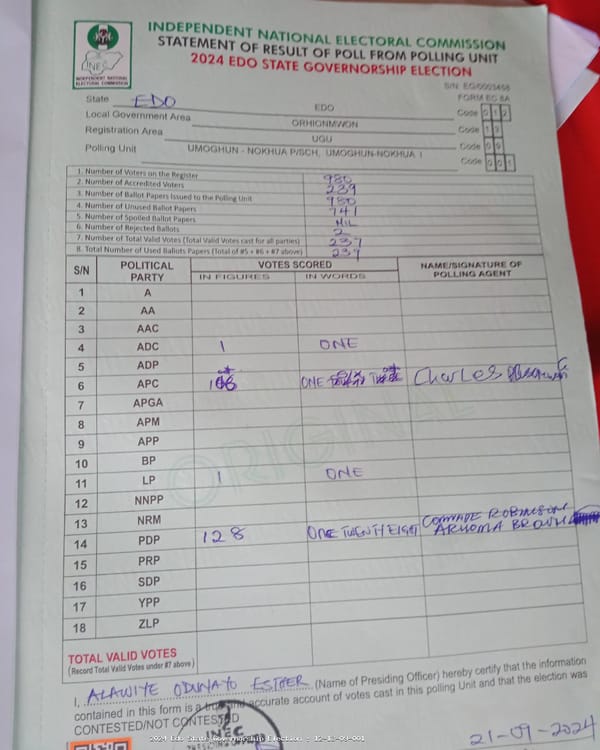 INDEPENDENT NATIONAL ELECTORAL COMMISSION
STATEMENT OF RESULT OF POLL FROM POLLING UNIT
2024 EDO STATE GOVERNORSHIP ELECTION
INEC
INDEPENDENT NATIONAL ELECTORAL COMMISSION
FORM EC 8A
State EDO EDO Code 12
Local Government Area ORHIONMWON Code
Registration Area UGU Code
Polling Unit UMOGHUN - NOKHUA P/SCH, UMOGHUN-NOKHUA 1 Code
1. Number of Voters on the Register 980
2. Number of Accredited Voters 239
3. Number of Ballot Papers Issued to the Polling Unit 980
4. Number of Unused Ballot Papers 741
5. Number of Spoiled Ballot Papers NIL
6. Number of Rejected Ballots 2
7. Number of Total Valid Votes (Total Valid Votes cast for all parties) 237
8. Total Number of Used Ballots Papers (Total of #5 + #6 + #7 above) 239
S/N POLITICAL PARTY VOTES SCORED NAME/SIGNATURE OF POLLING AGENT
IN FIGURES IN WORDS
1 A
2 AA
3 AAC
4 ADC 1 ONE
5 ADP
6 APC ONE Charles
7 APGA
8 APM
9 APP
10 BP
11 LP 1 ONE
12 NNPP
13 NRM
14 PDP 128 ONE TWENTY EIGHT COMRADE ROBINSON
BROWN
15 PRP
16 SDP
17 YPP
18 ZLP
ORIGINAL
TOTAL VALID VOTES
(Record Total Valid Votes under #7 above)
I, ALAWIYE ODUNAYO ESTHER (Name of Presiding Officer) hereby certify that the information
contained in this form is a true and accurate account of votes cast in this polling Unit and that the election was
CONTESTED/NOT CONTESTED
21-09-2024
2024 Edo State Governorship Election - 12-13-09-001